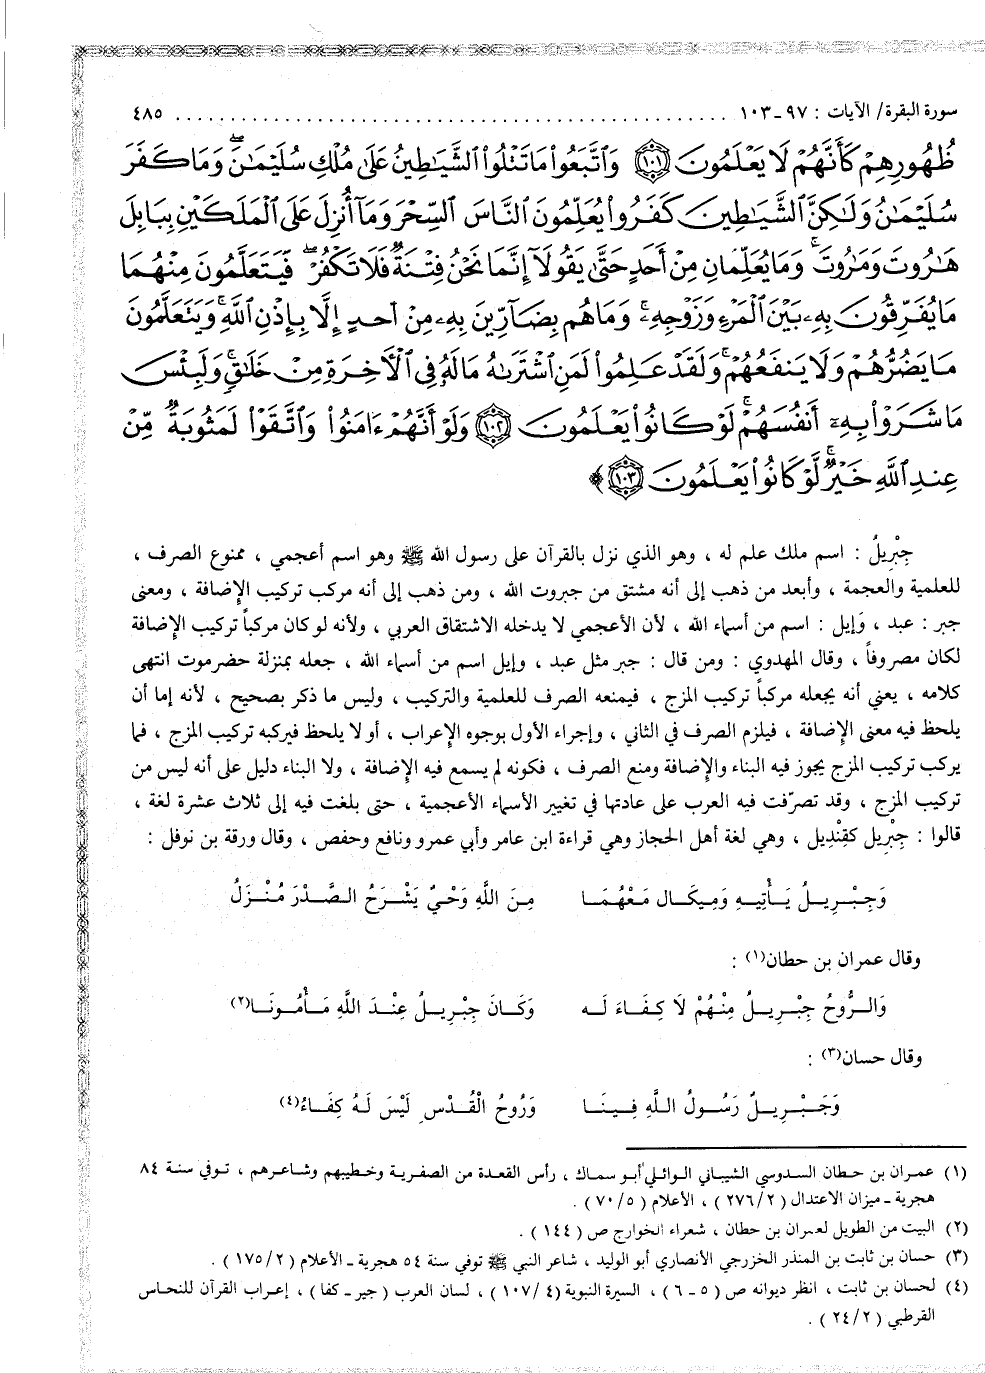 سورة البقرة/ الآيات : ٩٧-١٠٣ ........................................ ٤٨٥
ظُهُورِهِمْ كَأَنَّهُمْ لَا يَعْلَمُونَ ﴿١٠١﴾ وَاتَّبَعُوا مَا تَتْلُوا الشَّيَاطِينُ عَلَى مُلْكِ سُلَيْمَانَ وَمَا كَفَرَ
سُلَيْمَانُ وَلَكِنَّ الشَّيَاطِينَ كَفَرُوا يُعَلِّمُونَ النَّاسَ السِّحْرَ وَمَا أُنزِلَ عَلَى الْمَلَكَيْنِ بِبَابِلَ
هَارُوتَ وَمَارُوتَ وَمَا يُعَلِّمَانِ مِنْ أَحَدٍ حَتَّى يَقُولَا إِنَّمَا نَحْنُ فِتْنَةٌ فَلَا تَكْفُرْ فَيَتَعَلَّمُونَ مِنْهُمَا
مَا يُفَرِّقُونَ بِهِ بَيْنَ الْمَرْءِ وَزَوْجِهِ وَمَا هُم بِضَارِّينَ بِهِ مِنْ أَحَدٍ إِلَّا بِإِذْنِ اللَّهِ وَيَتَعَلَّمُونَ
مَا يَضُرُّهُمْ وَلَا يَنفَعُهُمْ وَلَقَدْ عَلِمُوا لَمَنِ اشْتَرَاهُ مَا لَهُ فِي الْآخِرَةِ مِنْ خَلَاقٍ وَلَبِئْسَ
مَا شَرَوْا بِهِ أَنفُسَهُمْ لَوْ كَانُوا يَعْلَمُونَ ﴿١٠٢﴾ وَلَوْ أَنَّهُمْ ءَامَنُوا وَاتَّقَوْا لَمَثُوبَةٌ مِّنْ
عِندِ اللَّهِ خَيْرٌ لَّوْ كَانُوا يَعْلَمُونَ ﴿١٠٣﴾ ﴾
جِبْرِيلُ : اسم ملك علم له ، وهو الذي نزل بالقرآن على رسول الله ﷺ وهو اسم أعجمي ، ممنوع الصرف ،
للعلمية والعجمة ، وأبعد من ذهب إلى أنه مشتق من جبروت الله ، ومن ذهب إلى أنه مركب تركيب الإضافة ، ومعنى
جبر : عبد ، وَإيل : اسم من أسماء الله ، لأن الأعجمي لا يدخله الاشتقاق العربي ، ولأنه لو كان مركباً تركيب الإضافة
لكان مصروفاً ، وقال المهدوي : ومن قال : جبر مثل عبد ، وإيل اسم من أسماء الله ، جعله بمنزلة حضرموت انتهى
كلامه ، يعني أنه يجعله مركباً تركيب المزج ، فيمنعه الصرف للعلمية والتركيب ، وليس ما ذكر بصحيح ، لأنه إما أن
يلحظ فيه معنى الإضافة ، فيلزم الصرف في الثاني ، وإجراء الأول بوجوه الإعراب ، أو لا يلحظ فيركبه تركيب المزج ، فما
يركب تركيب المزج يجوز فيه البناء والإضافة ومنع الصرف ، فكونه لم يسمع فيه الإضافة ، ولا البناء دليل على أنه ليس من
تركيب المزج ، وقد تصرّفت فيه العرب على عادتها في تغيير الأسماء الأعجمية ، حتى بلغت فيه إلى ثلاث عشرة لغة ،
قالوا : جِبْرِيل كقِنْدِيل ، وهي لغة أهل الحجاز وهي قراءة ابن عامر وأبي عمرو ونافع وحفص ، وقال ورقة بن نوفل :
وَجِبْرِيلُ يَأْتِيهِ وَمِيكَال مَعْهُمَا مِنَ اللَّهِ وَحْيٌ يَشْرَحُ الصَّدْرَ مُنْزَلُ
وقال عمران بن حطان(١) :
وَالرُّوحُ جِبْرِيلُ مِنْهُمْ لَا كِفَاءَ لَه وَكَانَ جِبْرِيلُ عِنْدَ اللَّهِ مَأْمُونَا(٢)
وقال حسان(٣) :
وَجَبْرِيلٌ رَسُولُ اللَّهِ فِينَا وَرُوحُ الْقُدْسِ لَيْسَ لَهُ كِفَاءُ(٤)
(١) عمران بن حطان السدوسي الشيباني الوائلي أبو سماك ، رأس القعدة من الصفرية وخطيبهم وشاعرهم ، توفي سنة ٨٤
هجرية - ميزان الاعتدال ( ٢٧٦/٢ ) ، الأعلام ( ٧٠/٥ ) .
(٢) البيت من الطويل لعمران بن حطان ، شعراء الخوارج ص ( ١٤٤ ) .
(٣) حسان بن ثابت بن المنذر الخزرجي الأنصاري أبو الوليد ، شاعر النبي ﷺ توفي سنة ٥٤ هجرية - الأعلام ( ١٧٥/٢ ) .
(٤) لحسان بن ثابت ، انظر ديوانه ص ( ٥ - ٦ ) ، السيرة النبوية ( ١٠٧/٤ ) ، لسان العرب ( جبر - كفا ) ، إعراب القرآن للنحاس
القرطبي ( ٢٤/٢ ) .